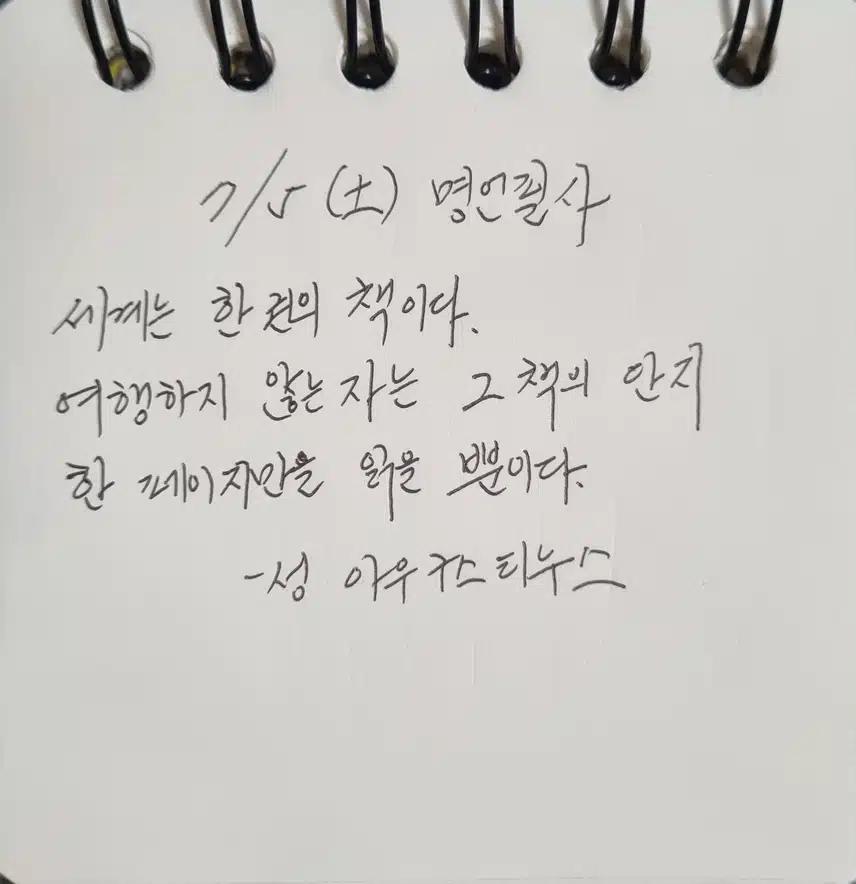 7/5 (土) 명언필사
세계는 한 권의 책이다.
여행하지 않는 자는 그 책의 안지
한 페이지만을 읽을 뿐이다.
-성 아우구스티누스